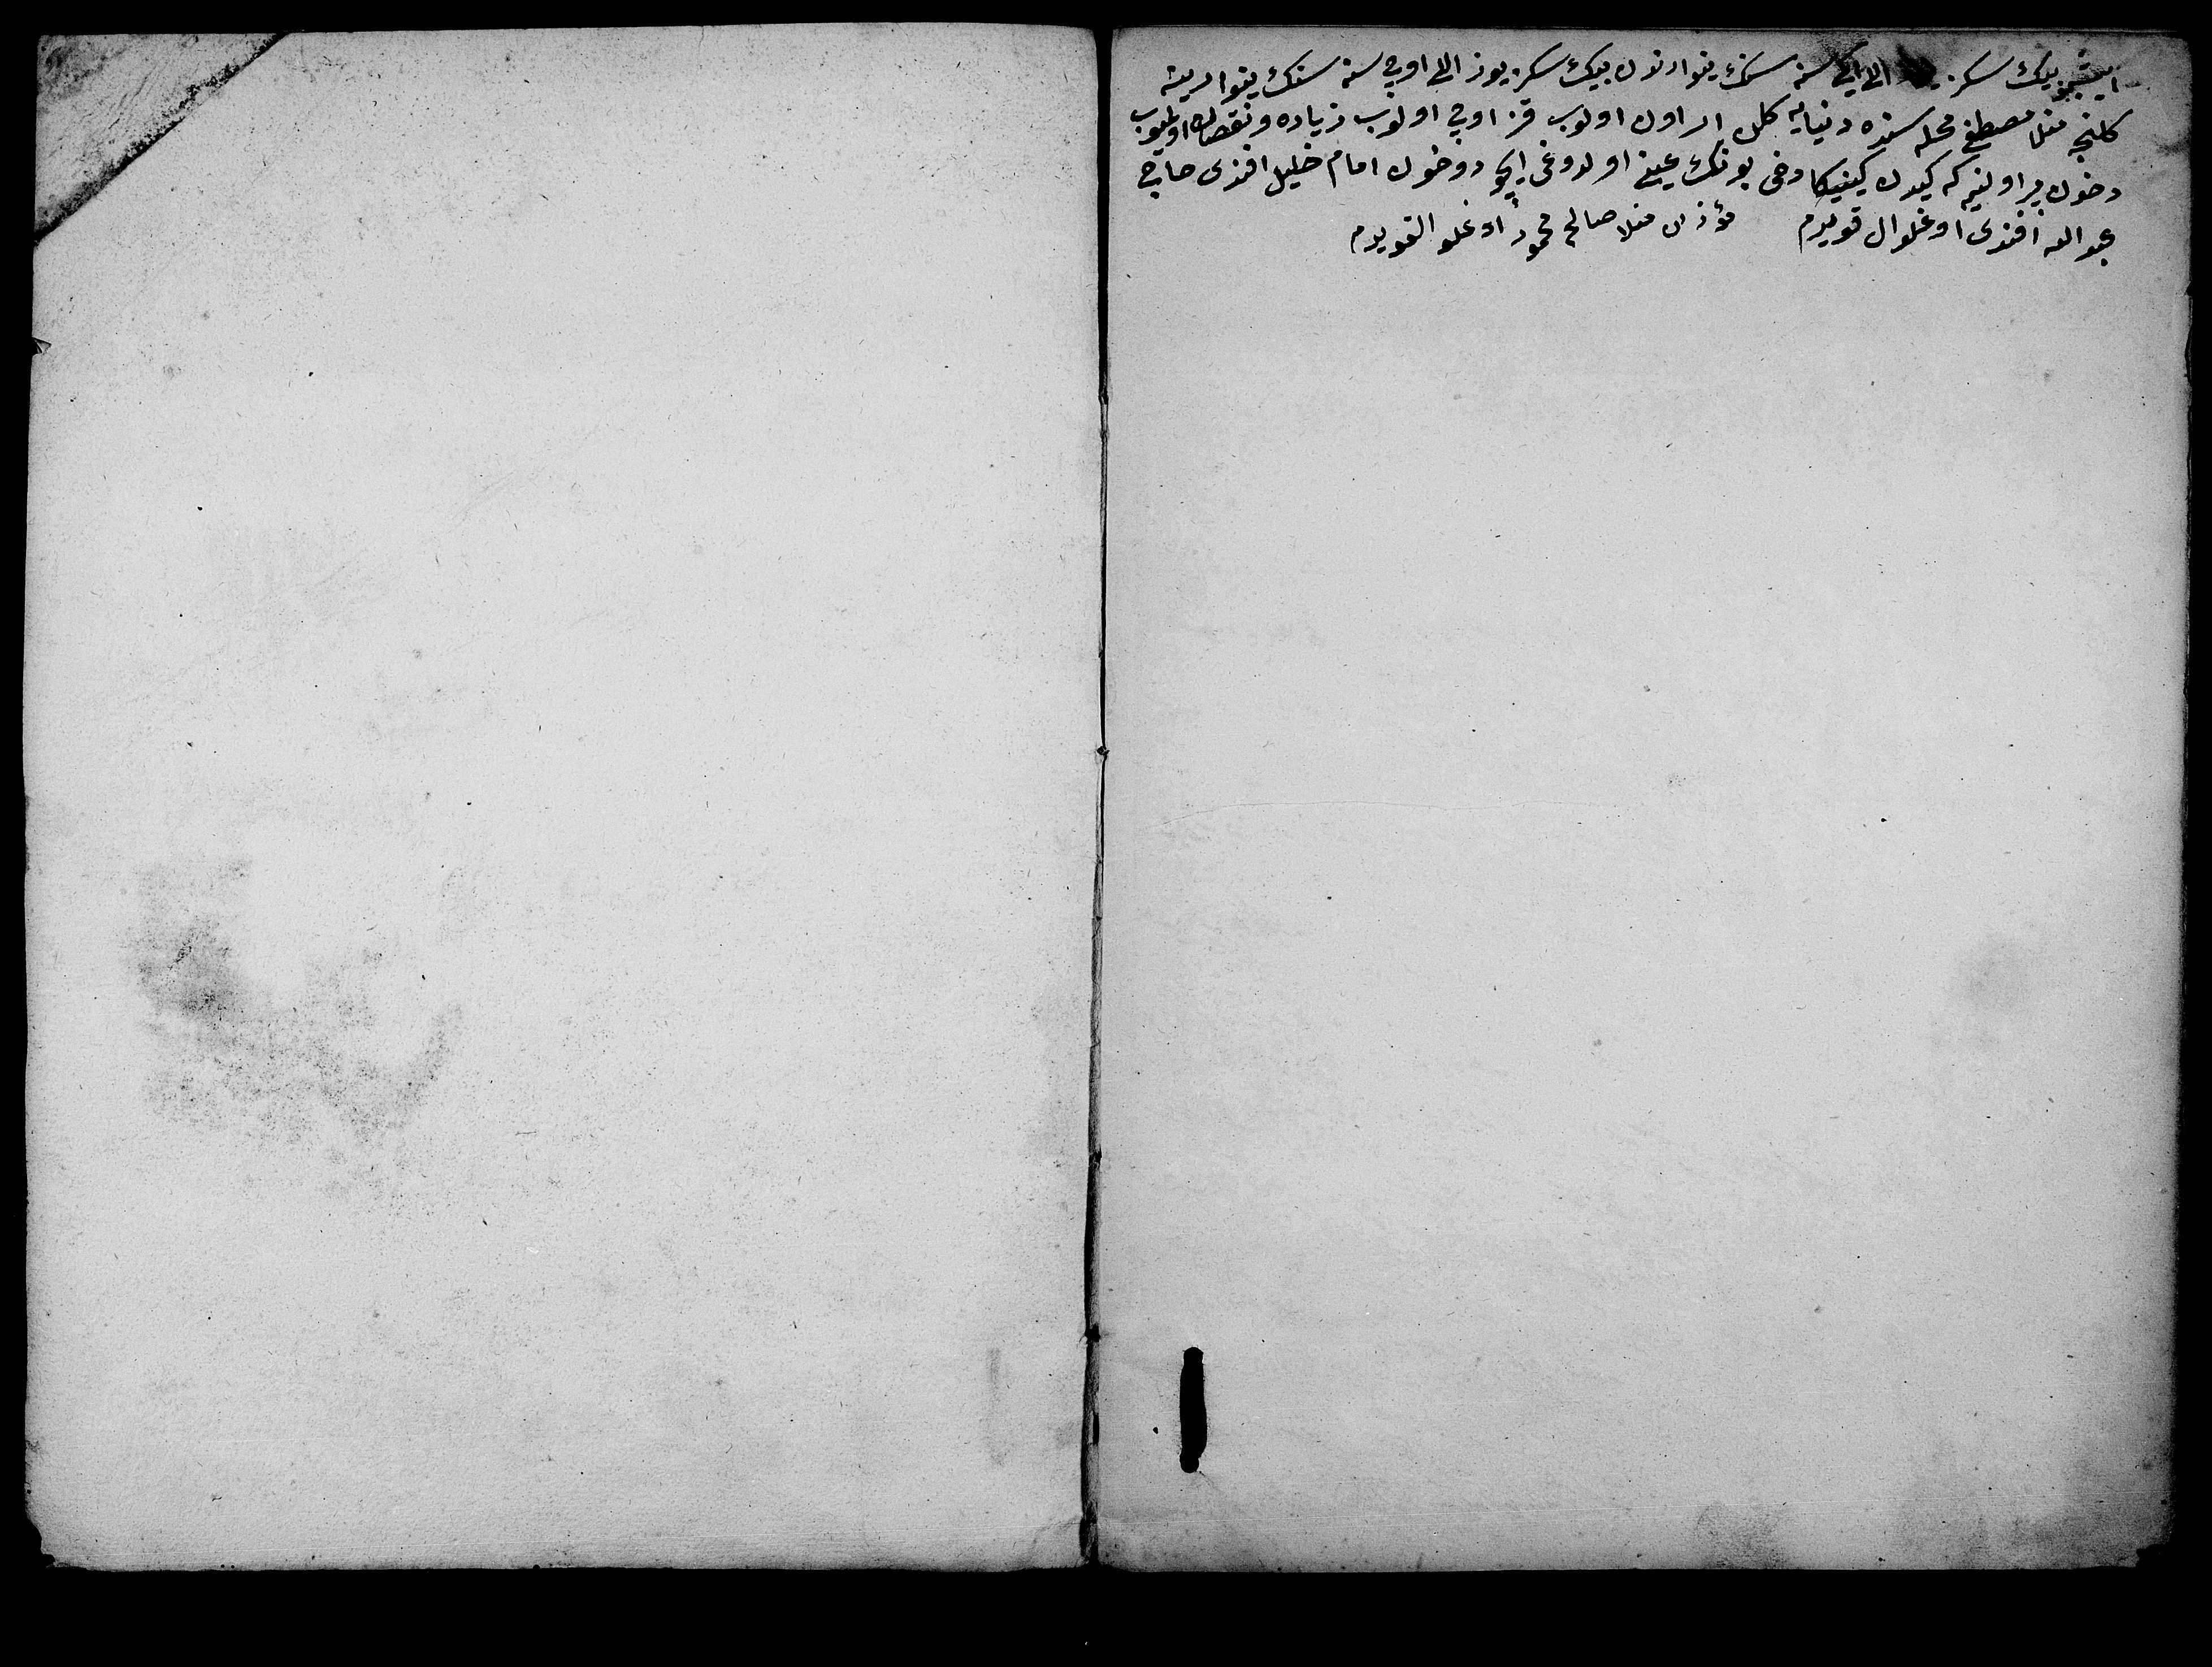 اشبو بيك سكز الی ايكی سنه سنك ينوارندن بيك سكز يوز الی اوچ سنه سنك ينوارينه
كلنجه منلا مصطفی محله سنده دنيايه كلن ار اون اولوب قز اوچ اولوب زياده و نقصان اولميوب
دخون بر اولنيركه كيدن دخی بونك عينی اولدوغی ايچون دوخون امام خليل افندی حاجی
عبد الله افندی اوغلو ال قويدم مؤذن منلا صالح محمود اوغلو ال قويدم